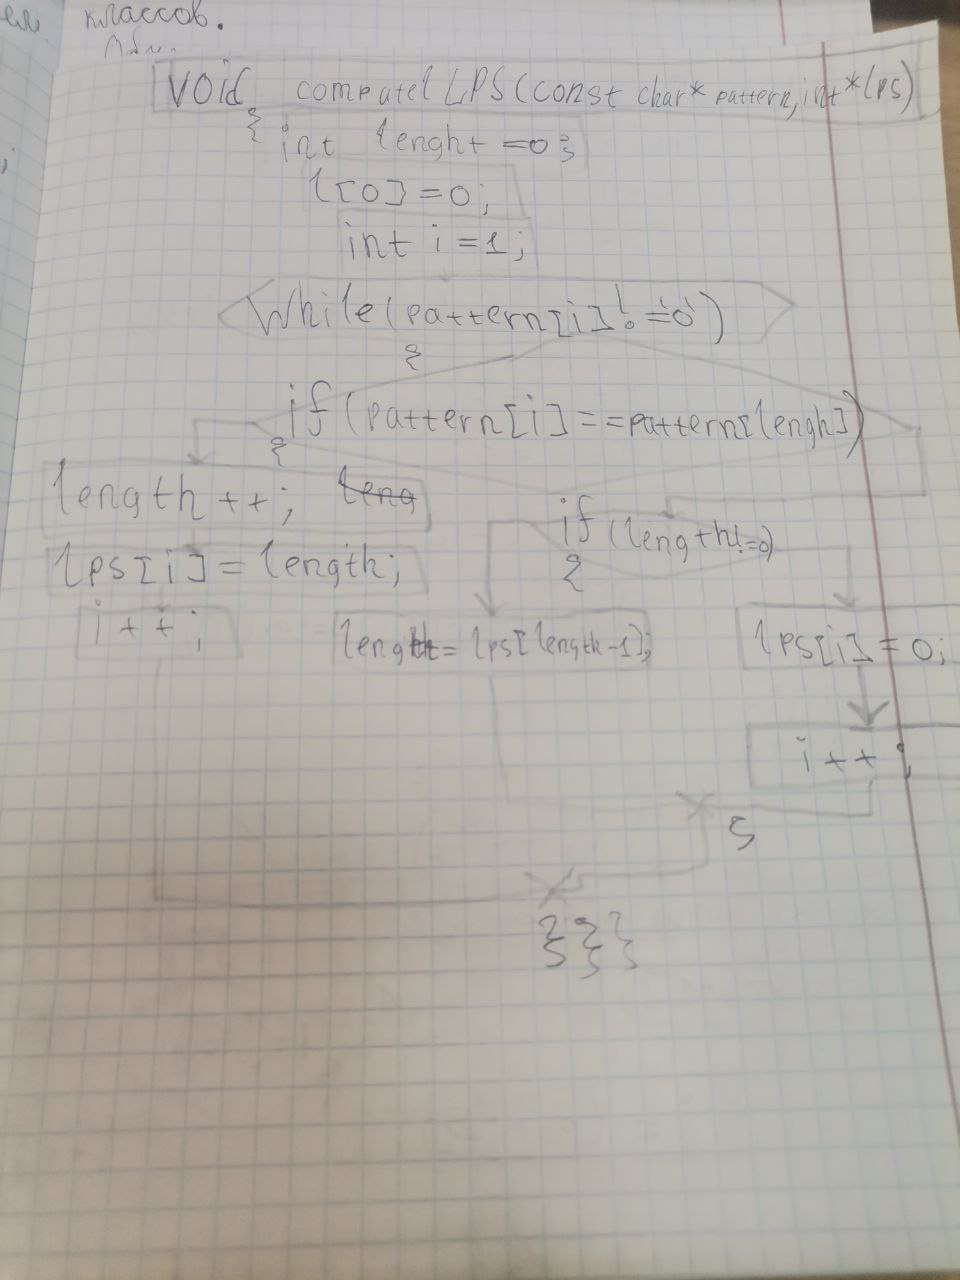 классов.
void computel LPS(const char* pattern, int *lps)
{
int lenght =0;
l[0]=0;
int i=1;
While(pattern[i]!='0')
{
if (pattern[i]==pattern[lengh])
{
length++;
if (length!=0)
lps[i]=length;
{
i++;
length=lps[length-1];
lps[i]=0;
i++;
}
}}}